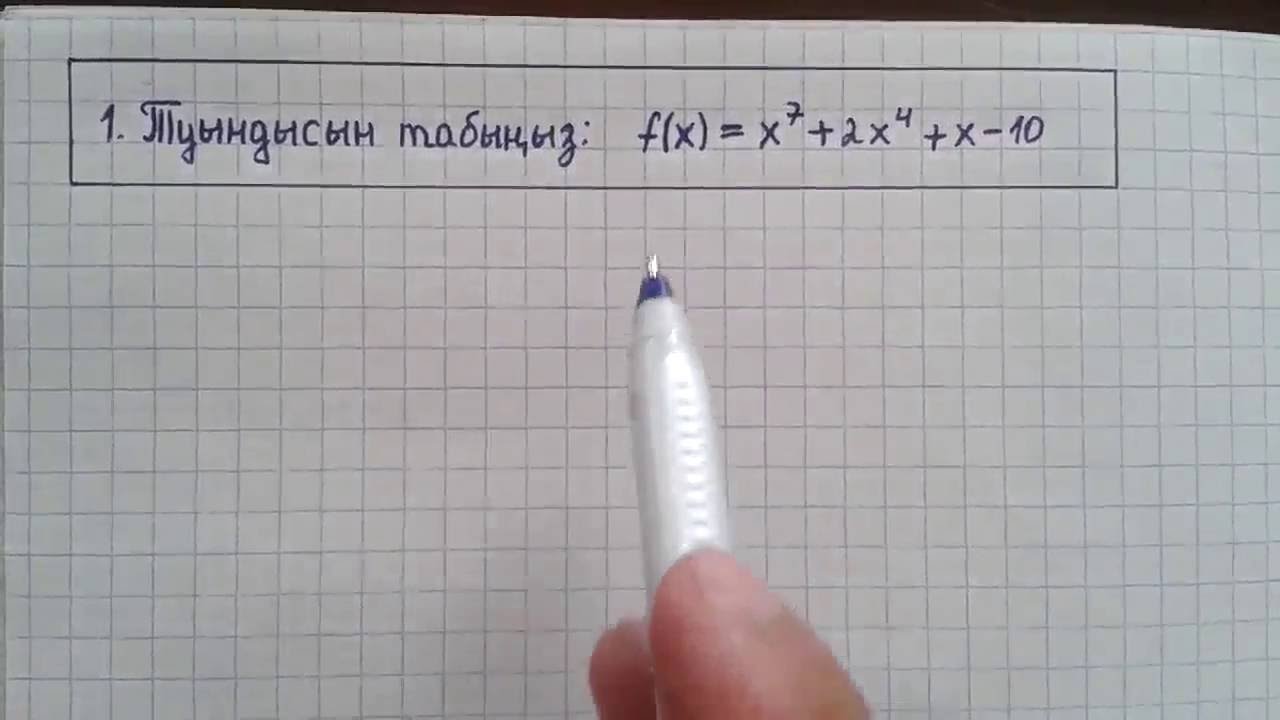 1. Туындысын табыңыз: f(x) = x⁷ + 2x⁴ + x − 10